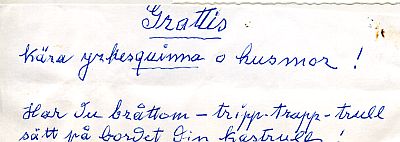 Grattis
Kära yrkesquinna o husmor !
Har Du bråttom – tripp-trapp-trull
sätt på bordet Din kastrull !